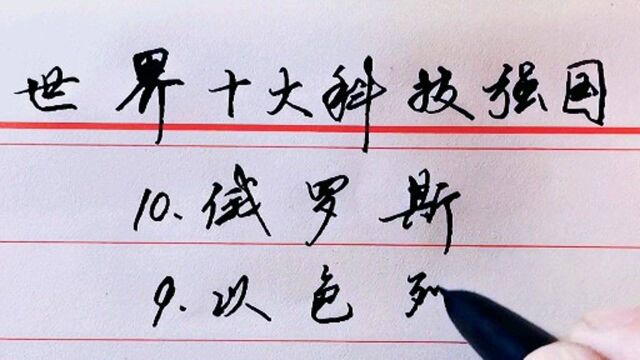 世界十大科技强国
10.俄罗斯
9.以色列